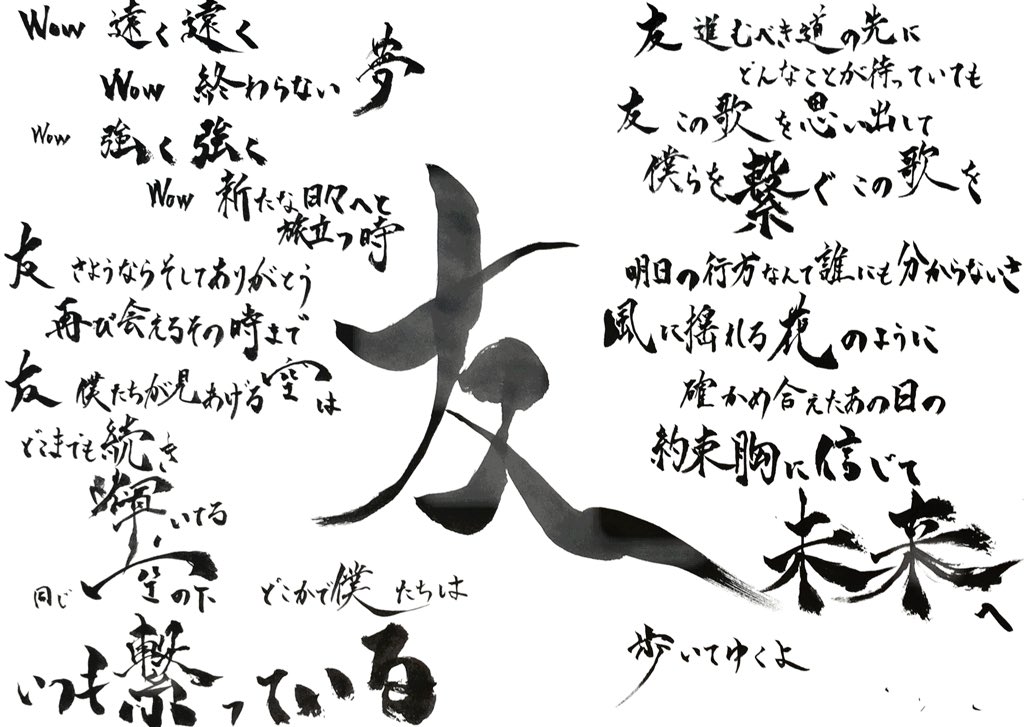 Wow 遠く遠く
Wow 終わらない夢
Wow 強く強く
Wow 新たな日々へと
旅立つ時
友 さようならそしてありがとう
再び会えるその時まで
友 僕たちが見あげる空は
どこまでも続き
輝いてる
同じ空の下 どこかで僕たちは
いつも繋っている
友
友 進むべき道の先に
どんなことが待っていても
友 この歌を思い出して
僕らを繋ぐこの歌を
明日の行方なんて誰にも分からないさ
風に揺れる花のように
確かめ合えたあの日の
約束胸に信じて
未来へ
歩いてゆくよ